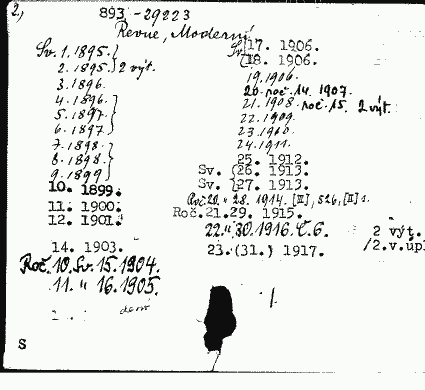 2,
893 -29223
Revue, Moderní
Sv. 1. 1895.
2. 1895. 2 výt.
3. 1896.
4. 1896.
5. 1897.
6. 1897
7. 1898.
8. 1898.
9. 1899
10. 1899.
11. 1900.
12. 1901.
14. 1903.
Roč. 10. Sv. 15. 1904.
11. " 16. 1905.
S
Sv. 17. 1906.
18. 1906.
19. 1906.
20. roč. 14. 1907.
21. 1908. roč. 15. 2 výt.
22. 1909.
23. 1910.
24. 1911.
25. 1912.
Sv. 26. 1913.
Sv. 27. 1913.
Roč. 20. " 28. 1914. [II], 526, [II] s.
Roč. 21. 29. 1915.
22. " 30. 1916. Č. 6. 2 výt.
23. (31.) 1917. /2.v.úpl